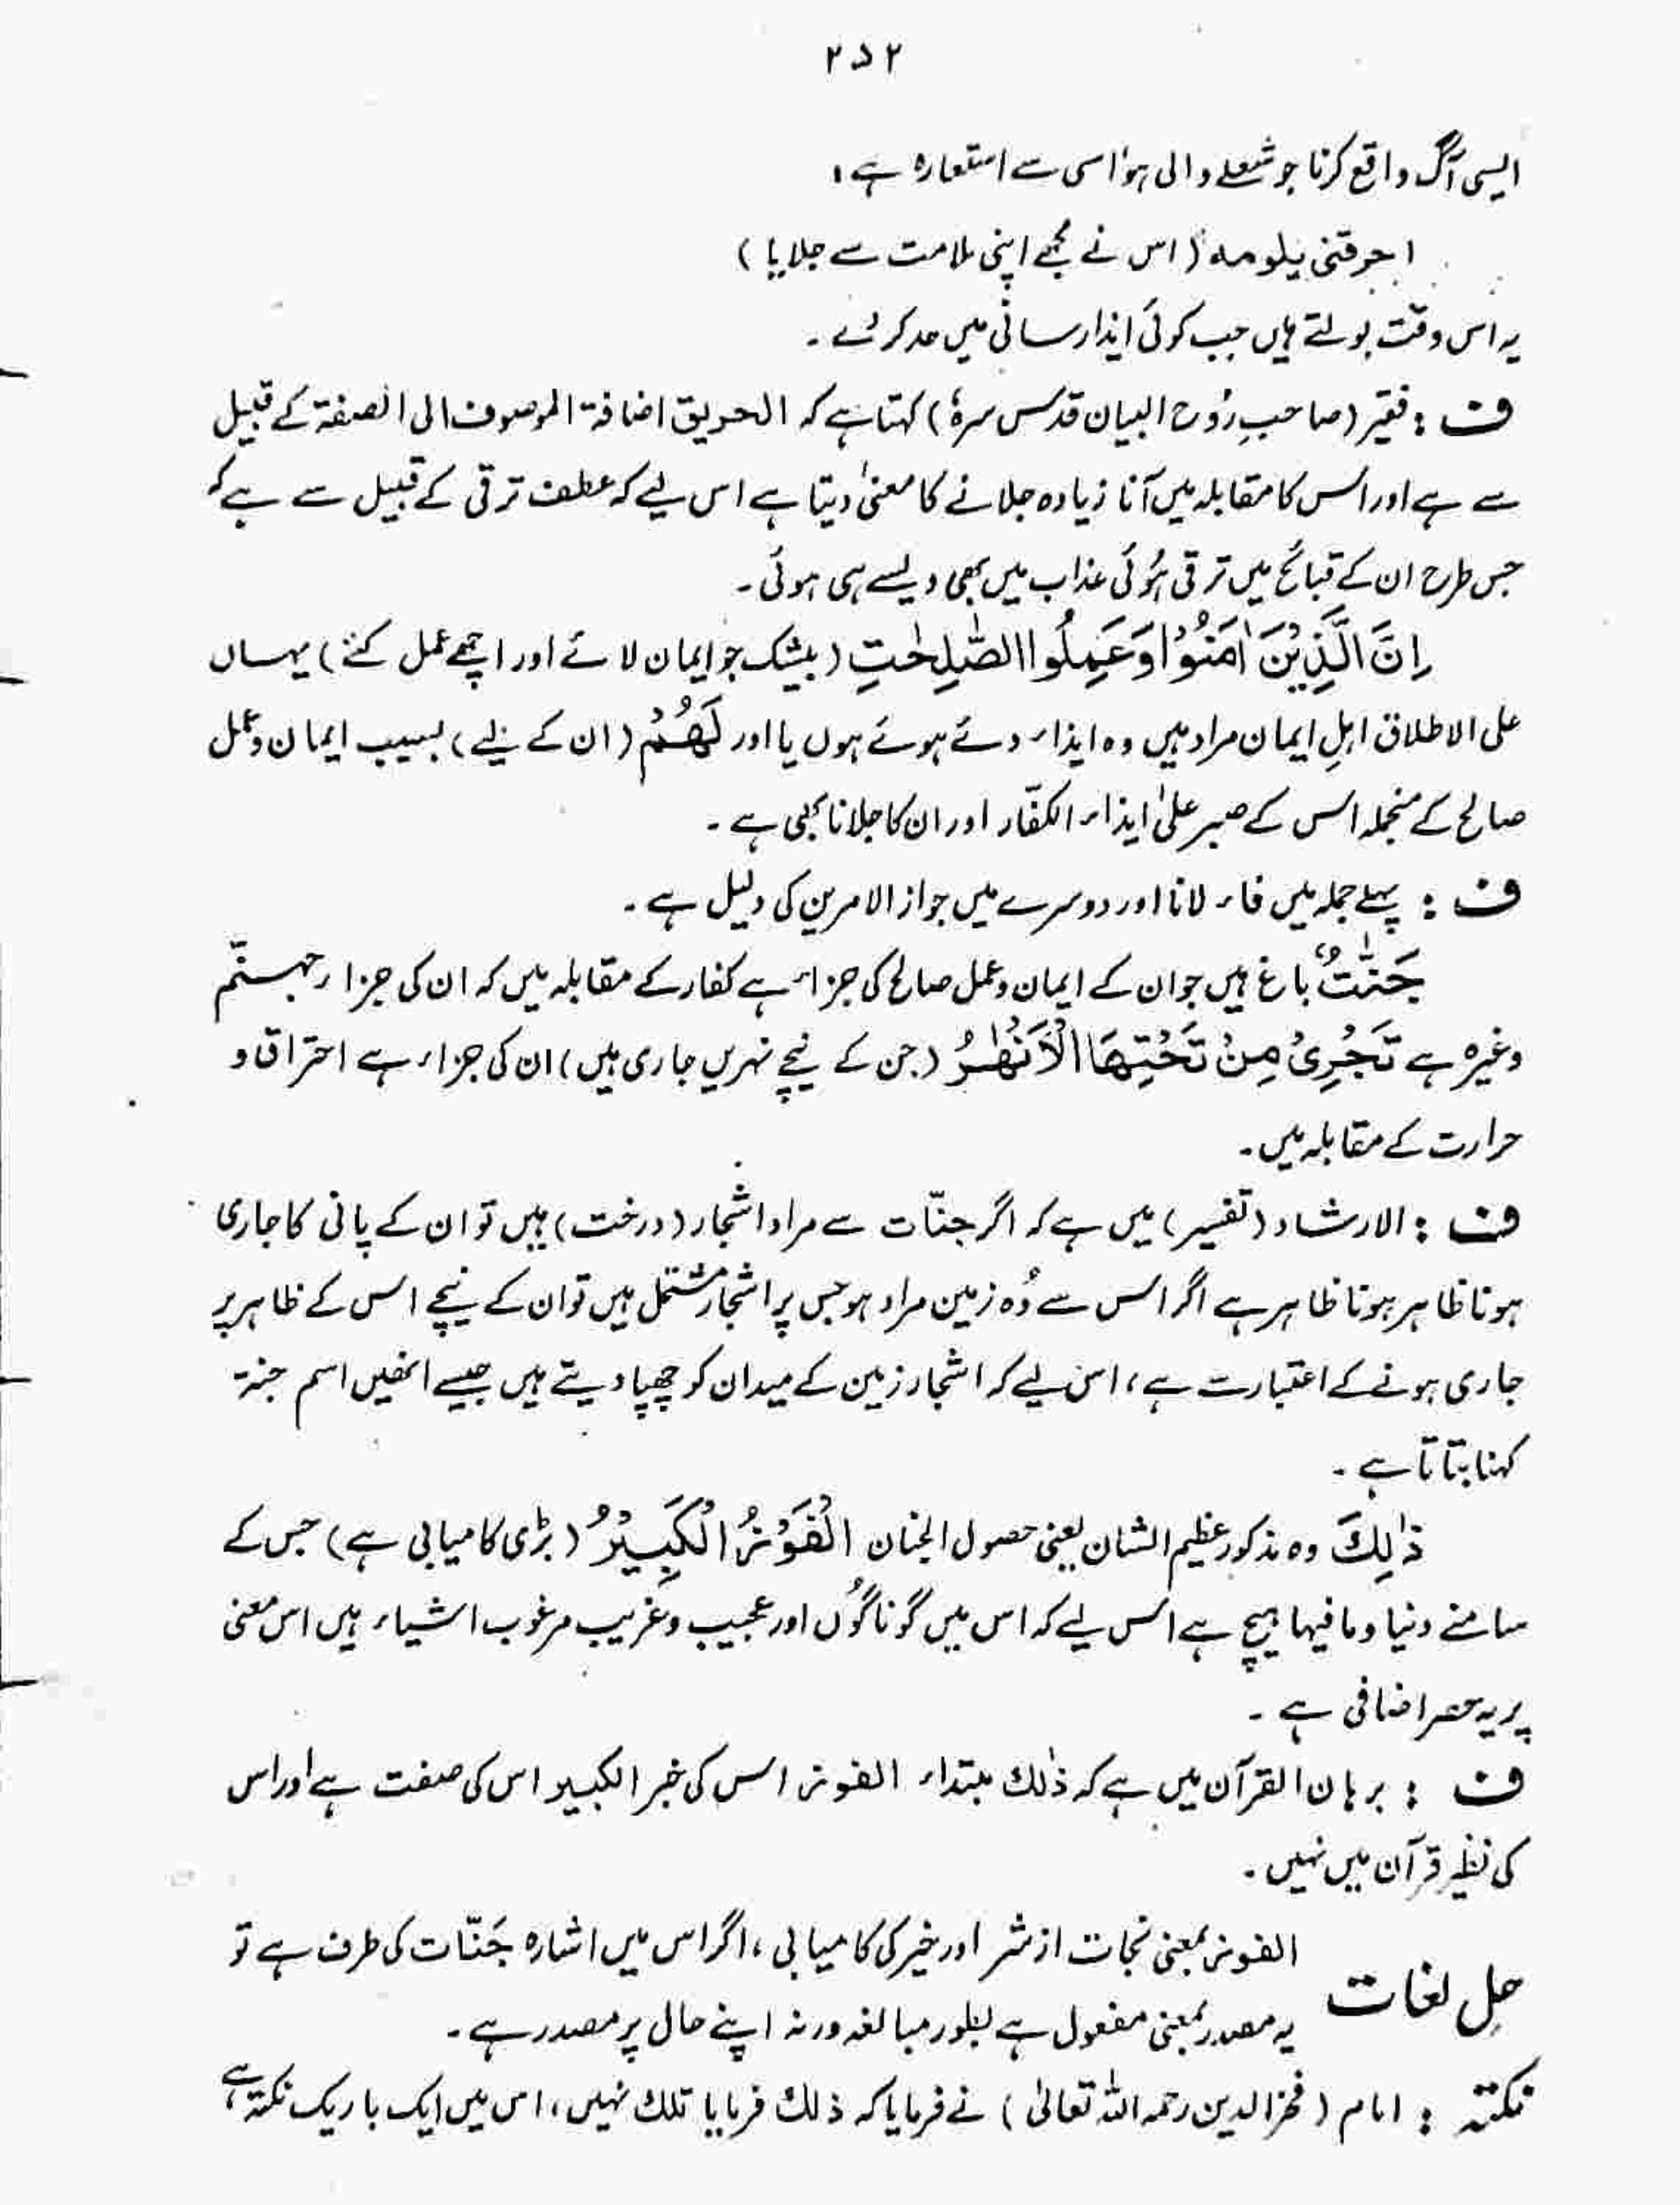 ۲۵۲
ایسی آگ واقع کرنا جو شعلے والی ہو اسی سے استعارہ ہے ؛
احرقنی بلومہ (اس نے مجھے اپنی ملامت سے جلایا)
یہ اس وقت بولتے ہیں جب کوئی ایذا رسانی میں حد کر دے ۔
ف : فقیر (صاحبِ رُوح البیان قدس سرہٗ) کہتا ہے کہ الحریق اضافۃ الموصوف الی الصفۃ کے قبیل
سے ہے اور اس کا مقابلہ میں آنا زیادہ جلانے کا معنیٰ دیتا ہے اس لیے کہ عطف ترقی کے قبیل سے ہے کہ
جس طرح ان کے قبائح میں ترقی ہُوئی عذاب میں بھی ویسے ہی ہوئی ۔
اِنَّ الَّذِیْنَ اٰمَنُوْا وَعَمِلُوا الصّٰلِحٰتِ (بیشک جو ایمان لائے اور اچھے عمل کئے) یہاں
علی الاطلاق اہلِ ایمان مراد ہیں وہ ایذاء دئے ہوئے ہوں یا اور لَھُمْ (ان کے لیے) بسبب ایمان و عمل
صالح کے منجملہ اس کے صبر علیٰ ایذاء الکفّار اور ان کا جلانا بھی ہے ۔
ف : پہلے جملہ میں فاء لانا اور دوسرے میں جواز الامرین کی دلیل ہے ۔
جَنّٰتٌ باغ ہیں جو ان کے ایمان و عمل صالح کی جزاء ہے کفار کے مقابلہ میں کہ ان کی جزاء جہنّم
وغیرہ ہے تَجْرِیْ مِنْ تَحْتِھَا الْاَنْھٰرُ (جن کے نیچے نہریں جاری ہیں) ان کی جزاء ہے احتراق و
حرارت کے مقابلہ میں ۔
ف : الارشاد (تفسیر) میں ہے کہ اگر جنّات سے مراد اشجار (درخت) ہیں تو ان کے پانی کا جاری
ہونا ظاہر ہونا ظاہر ہے اگر اس سے وُہ زمین مراد ہو جس پر اشجار مشتمل ہیں تو ان کے نیچے اس کے ظاہر پر
جاری ہونے کے اعتبارت ہے ، اس لیے کہ اشجار زمین کے میدان کو چھپا دیتے ہیں جیسے انھیں اسم جنۃ
کہنا بتاتا ہے ۔
ذٰلِکَ وہ مذکور عظیم الشان یعنی حصول الجنان الْفَوْزُ الْکَبِیْرُ (بڑی کامیابی ہے) جس کے
سامنے دنیا و ما فیہا ہیچ ہے اس لیے کہ اس میں گوناگوُں اور عجیب و غریب مرغوب اشیاء ہیں اس معنی
پر یہ حصر اضافی ہے ۔
ف : برہان القرآن میں ہے کہ ذٰلک مبتداء الفوز اس کی خبر الکبیر اس کی صفت ہے اور اس
کی نظیر قرآن میں نہیں ۔
حلِ لغات
الفوز بمعنی نجات از شر اور خیر کی کامیابی ، اگر اس میں اشارہ جَنّات کی طرف ہے تو
یہ مصدر بمعنی مفعول ہے بطور مبالغہ ورنہ اپنے حال پر مصدر ہے ۔
نکتہ : امام (فخر الدین رحمہ اللہ تعالیٰ) نے فرمایا کہ ذٰلک فرمایا تلک نہیں ، اس میں ایک باریک نکتہ ہے ،